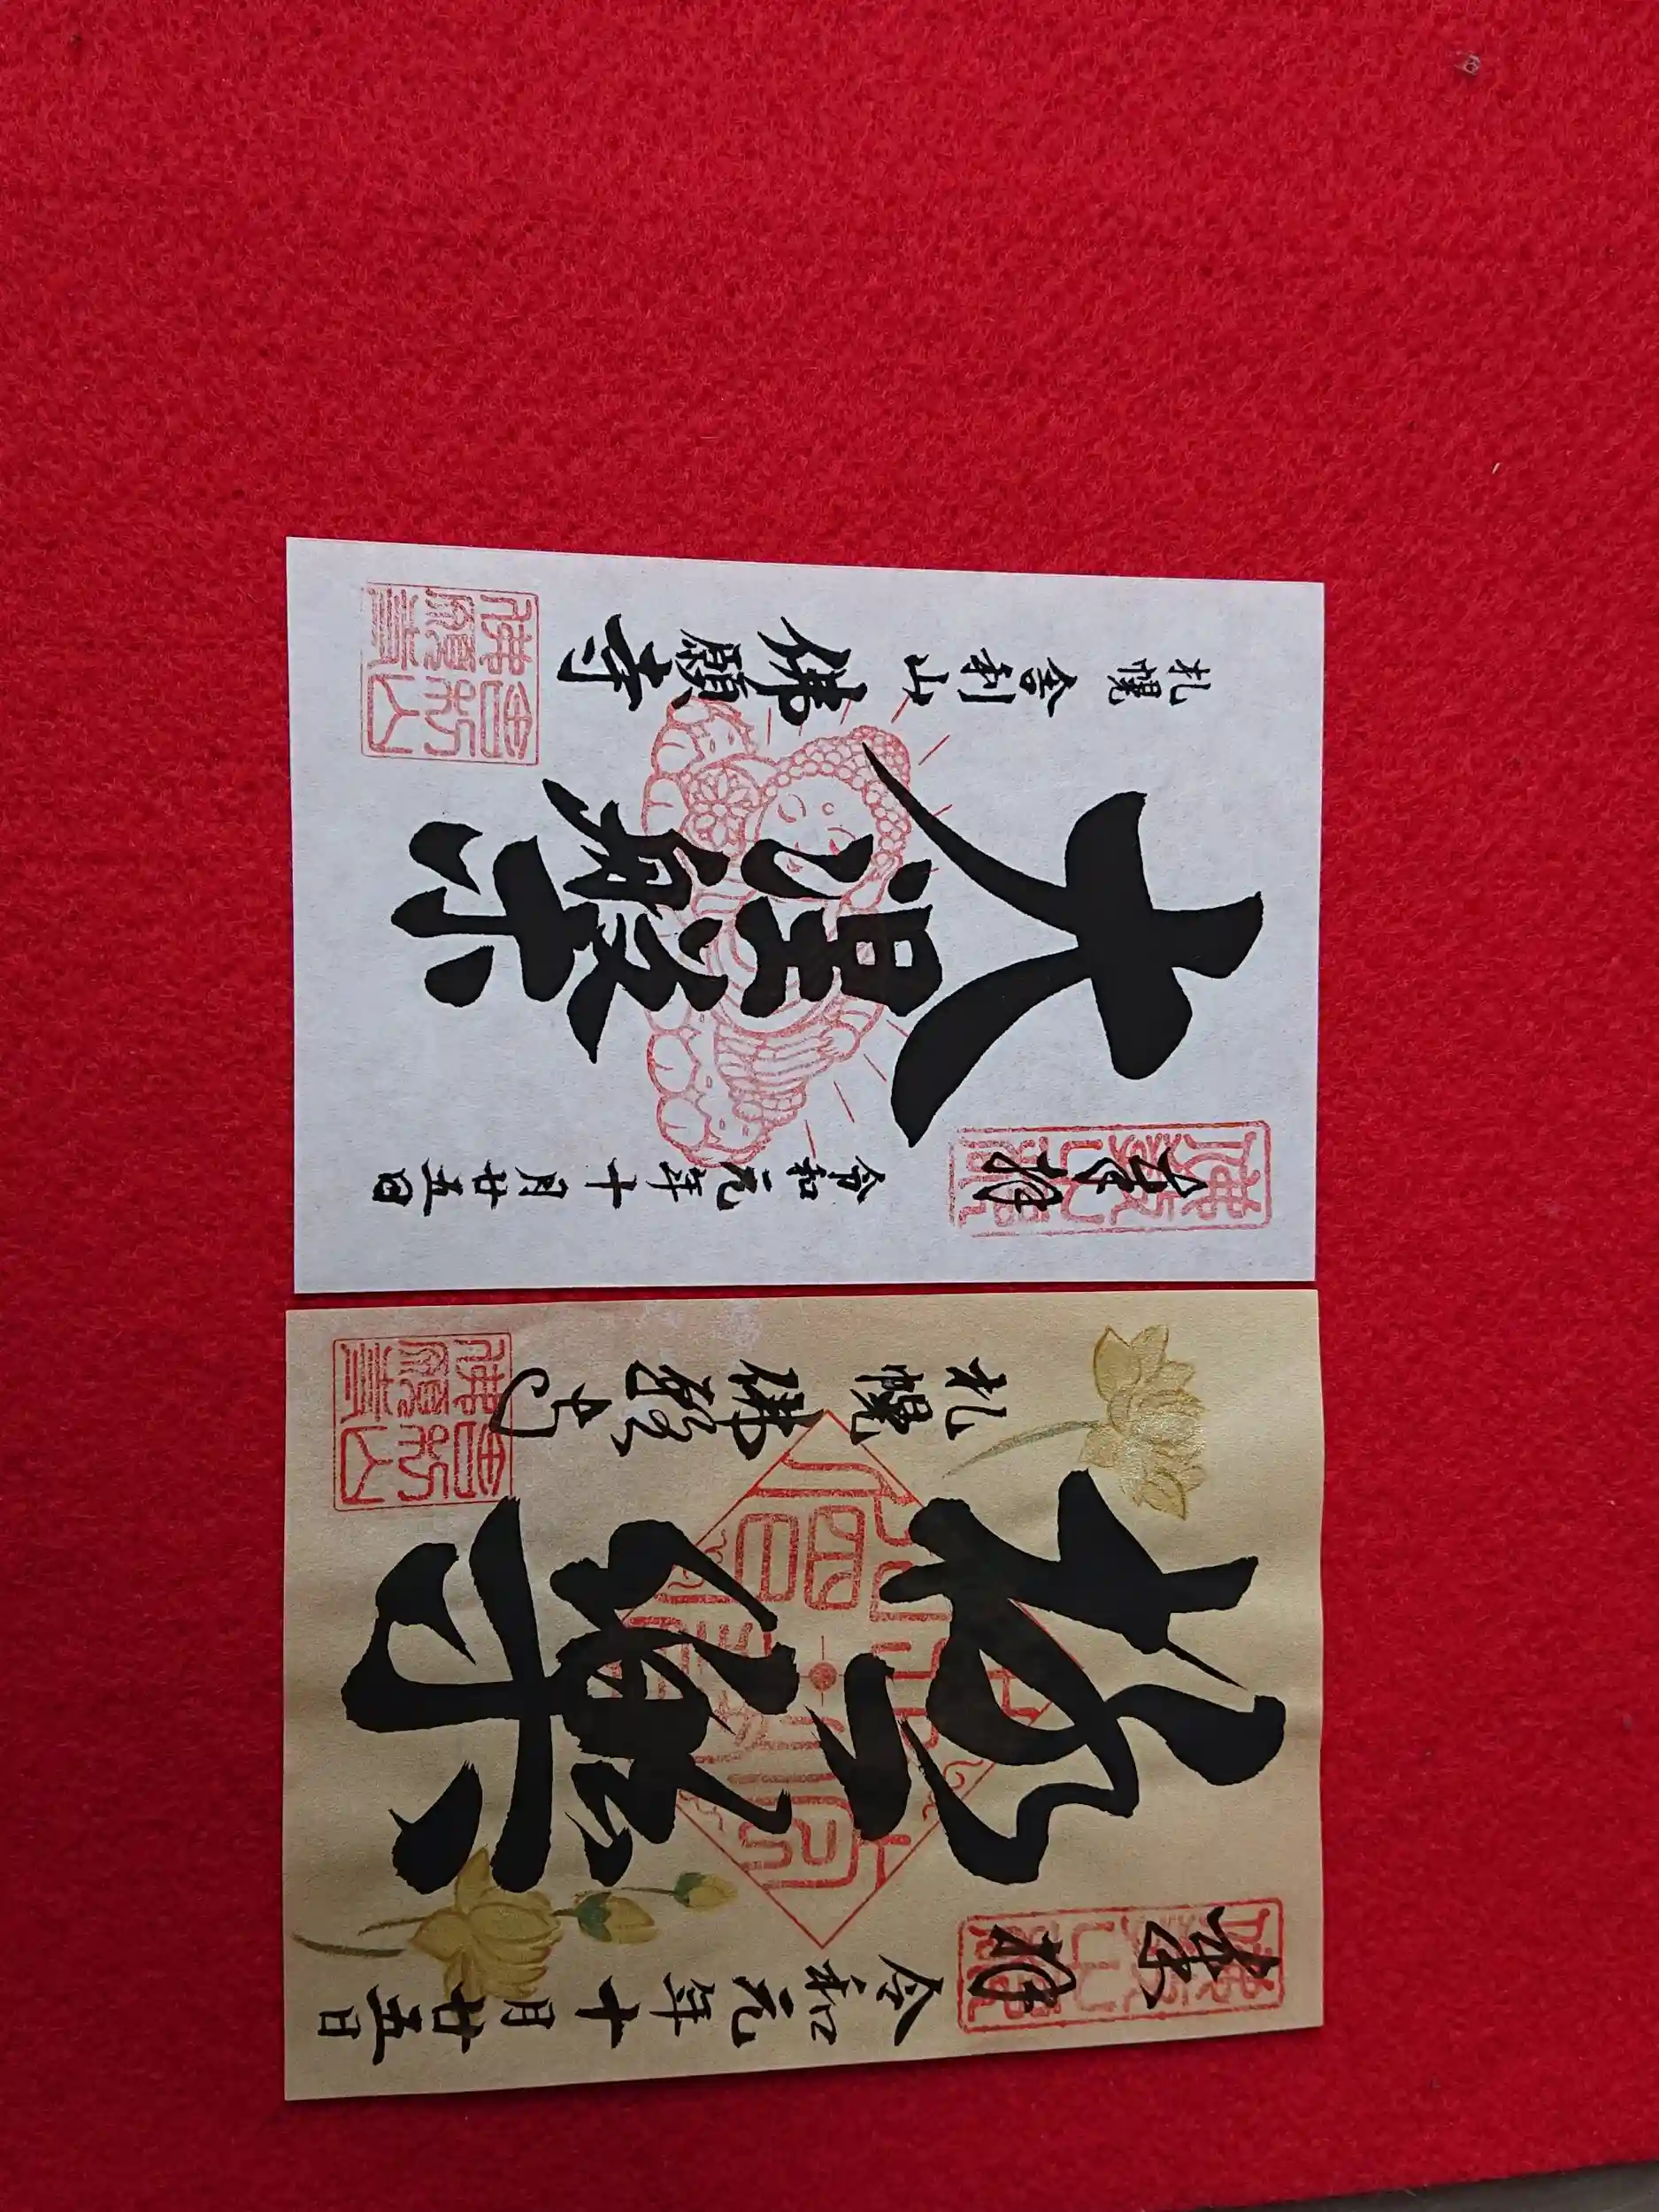 奉拝
令和元年十月廿五日
極樂
札幌 佛願寺
奉拝
令和元年十月廿五日
大涅槃
札幌 舎利山 佛願寺